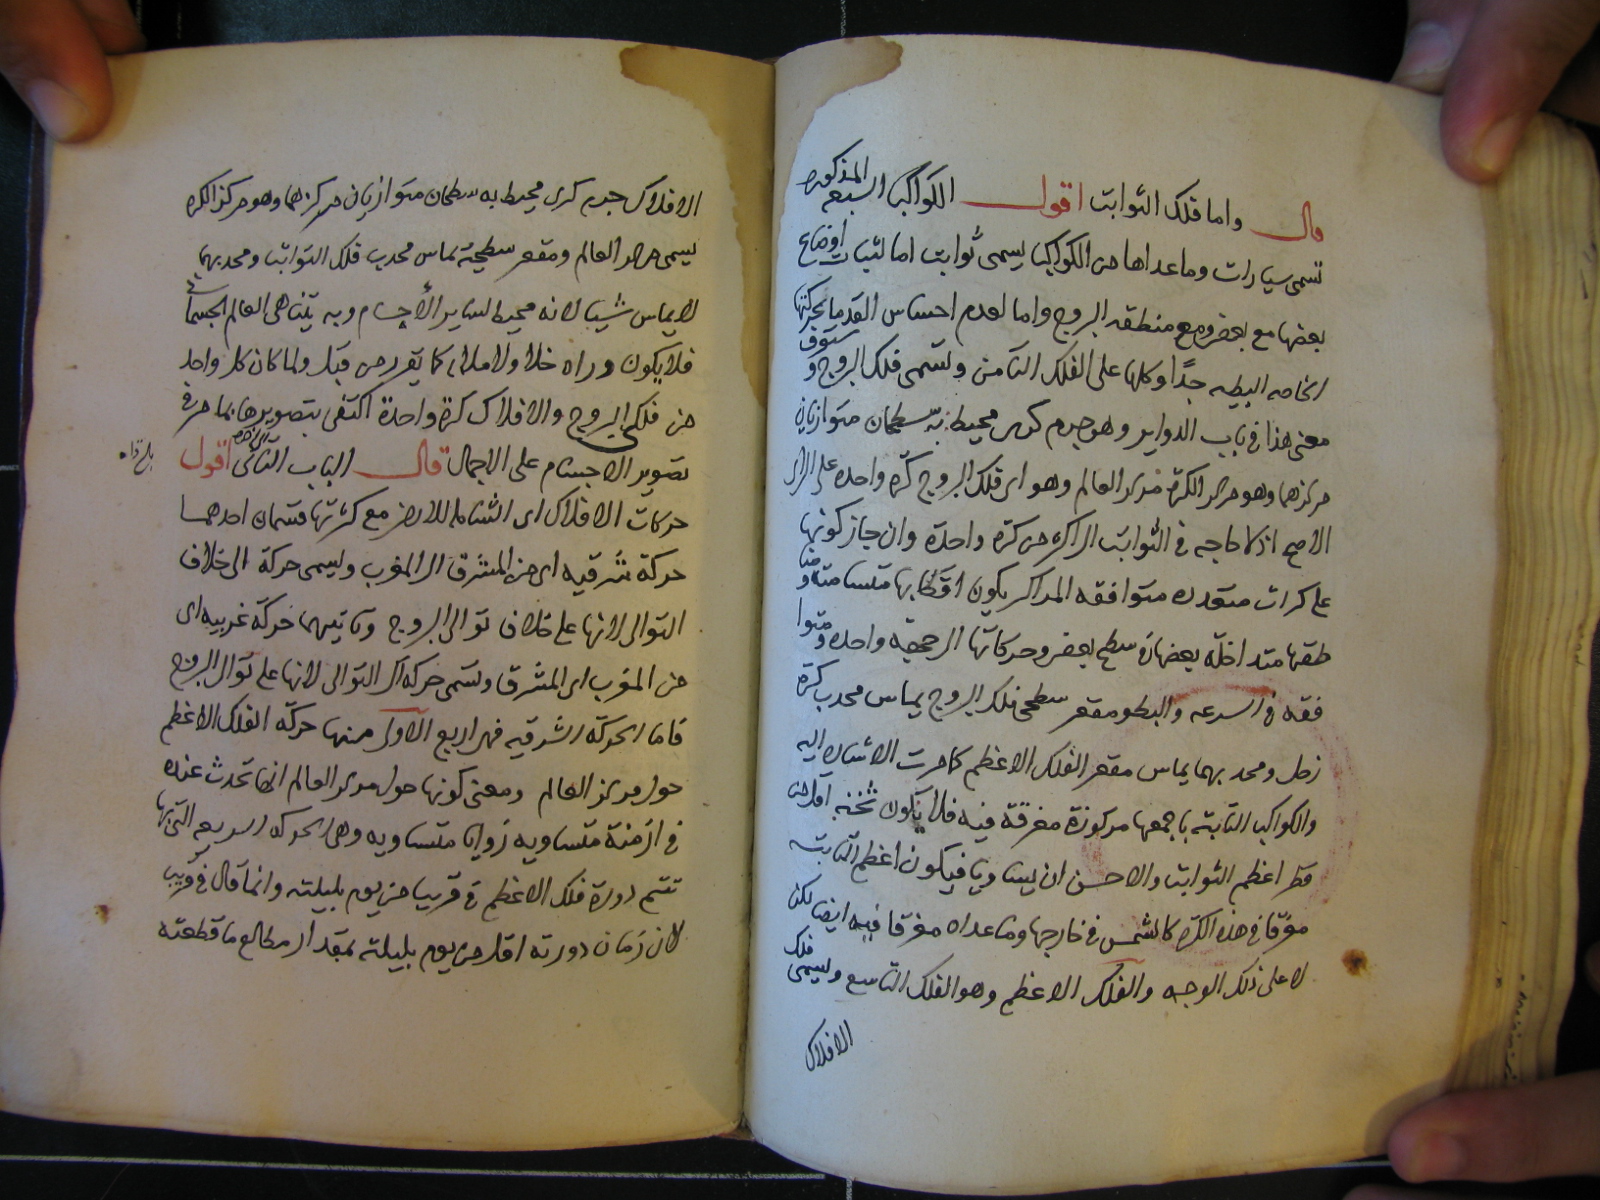 قال واما فلك الثوابت اقول الكواكب السبع المذكوره
تسمى سيارات وما عداها من الكواكب يسمى ثوابت اما لثبات اوضاع
بعضها مع بعض ومع منطقه البروج واما لعدم احساس القدما بحركتها
الخاصه البطيه جدًا وكلها على الفلك الثامن وتسمى فلك البروج و سنوف
معنى هذا في باب الدواير وهو جرم كرى محيط به سطحان متوازيان
مركزهما وهو مركز الكرة مركز العالم وهو اى فلك البروج كرة واحده على الراى
الاصح اذ لا حاجه فى الثوابت الى اكثر من كرة واحدة وان جاز كونها
على كرات متعدده متوافقه المراكز يكون اقطابها متسامته و منا
طقها متداخلة بعضها فى سطح بعض وحركاتها الى جهة واحده ومتوا
فقه فى السرعه والبطو ومقعر سطحى فلك البروج يماس محدب كرة
زحل ومحدبهما يماس مقعر الفلك الاعظم كما مرت الاشاره اليه
والكواكب الثابته باجمعها مركوزة مغرقة فيه فلا يكون ثخنه اقل من
قطر اعظم الثوابت والاحسن ان يساويا فيكون اعظم الثابته
مغرقا فى هذه الكرة كالشمس فى خارجها وما عداه مغرقا فيه ايضا لكن
لا على ذلك الوجه والفلك الاعظم وهو الفلك التاسع ويسمى فلك
الافلاك
الافلاك جرم كرى محيط به سطحان متوازيان مركزهما وهو مركز الكره
يسمى مركز العالم ومقعر سطحيه يماس محدب فلك الثوابت ومحدبهما
لا يماس شيا لانه محيط بساير الأجسام وبه يتناهى العالم الجسمانى
فلا يكون وراه خلا ولا ملا كما يقرر من قبل ولما كان كل واحد
من فلكى البروج والافلاك كرة واحدة اكتفى بتصويرها بما مر فى
تصوير الاجسام على الاجمال قال الباب الثانى الى اخره اقول
حركات الافلاك اى الشاملة للارض مع كثرتها قسمان احدهما
حركة شرقيه اى من المشرق الى المغرب ويسمى حركة الى خلاف
التوالى لانها على خلاف توالى البروج وثانيهما حركة غربيه اى
من المغرب الى المشرق وتسمى حركه الى التوالى لانها على توالى البروج
فاما الحركه الشرقيه فهى اربع الاولى منها حركة الفلك الاعظم
حول مركز العالم ومعنى كونها حول مركز العالم انها تحدث عنده
فى ازمنة متساويه زوايا متساويه وهى الحركه السريعه التى بها
تتم دورة فلك الاعظم فى قريب من يوم بليلته وانما قال فى قريب
لان زمان دورته اقل من يوم بليلته بمقدار مطالع ما قطعته